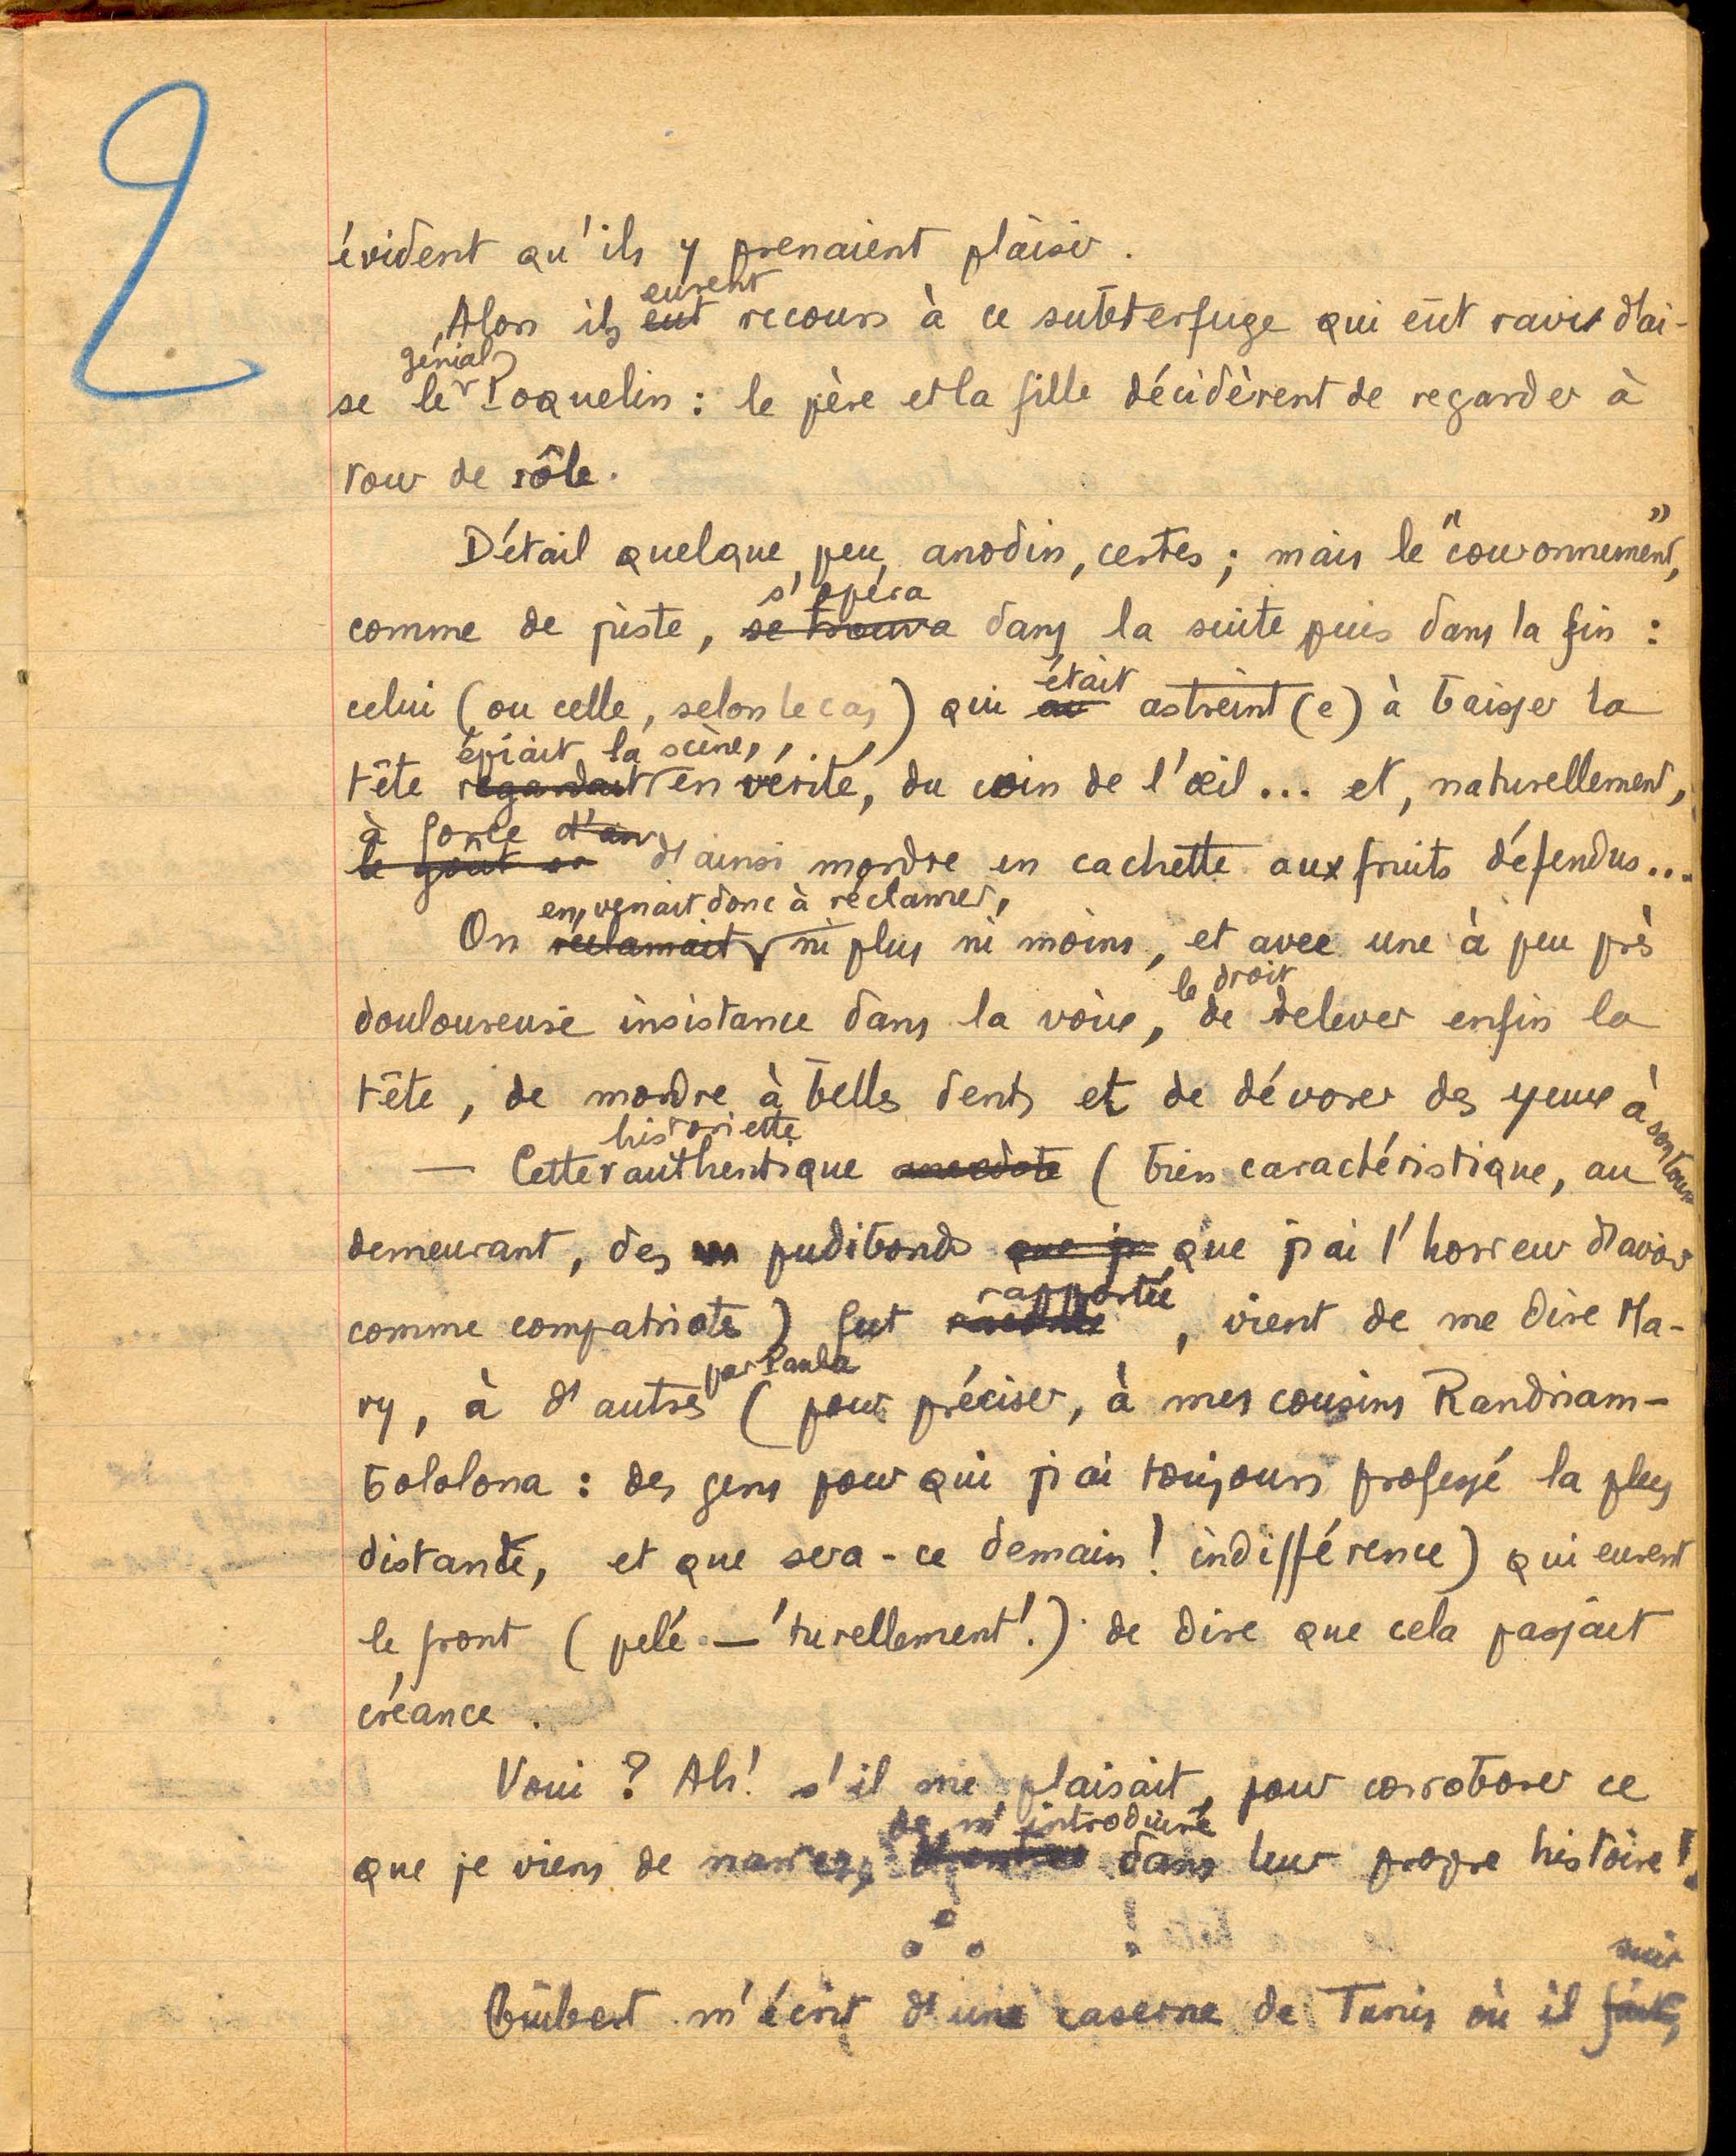 2
évident qu'ils y prenaient plaisir.
Alors ils eut eurent recours à ce subterfuge qui eût ravi d'ai-
se le génial Poquelin : le père et la fille décidèrent de regarder à
tour de rôle.
Détail quelque peu anodin, certes ; mais le "couronnement",
comme de juste, se trouva s'opéra dans la suite puis dans la fin :
celui (ou celle, selon le cas) qui était astreint(e) à baisser la
tête regardait épiait la scène, en vérité, du coin de l'œil... et, naturellement,
le goût à force d'ainsi mordre en cachette aux fruits défendus...
On réclamait en venait donc à réclamer, ni plus ni moins, et avec une à peu près
douloureuse insistance dans la voix, le droit de relever enfin la
tête, de mordre à belles dents et de dévorer des yeux à son tour
— Cette historiette authentique anecdote (bien caractéristique, au
demeurant, des pudibonds que je que j'ai l'horreur d'avoir
comme compatriotes) fut rapportée, vient de me dire Ma-
ry, à d'autres par Paula (pour préciser, à mes cousins Randriam-
bololona : des gens pour qui j'ai toujours professé la plus
distante, et que sera-ce demain ! indifférence) qui eurent
le front (pelé — 'turellement !) de dire que cela passait
créance.
Voui ? Ah ! s'il me plaisait, pour corroborer ce
que je viens de narrer, d'entrer de m'introduire dans leur propre histoire !
m'écrit d'une caserne de Tunis où il fait,